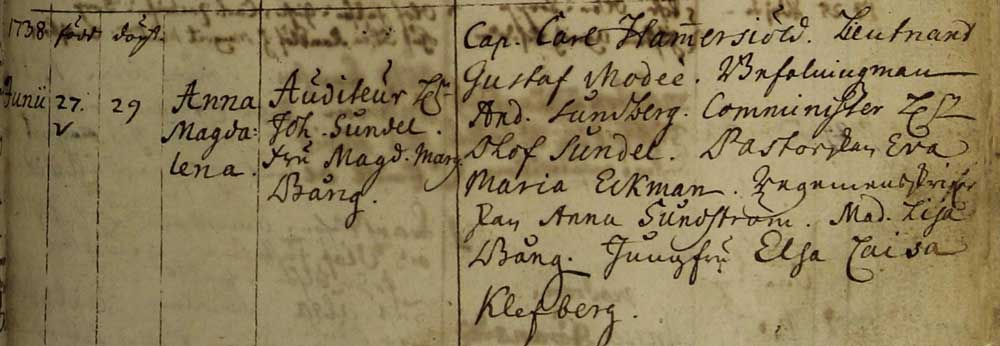 1738 född döpt.
Junii 27. 29
v
Anna
Magda=
lena.
Auditeur H
Joh. Sundel.
Fru Magd. Marg.
Bång.
Cap. Carl Hamersiöld. Lieutnand
Gustaf Modeè. Befalningzman
And. Sundberg. Comminister H
Olof Sundel. Pastorskan Eva
Maria Eckman. Regementzskrifwar
skan Anna Sundström. Mad. Lisa
Bång. Jungfru Elsa Caisa
Klefberg.